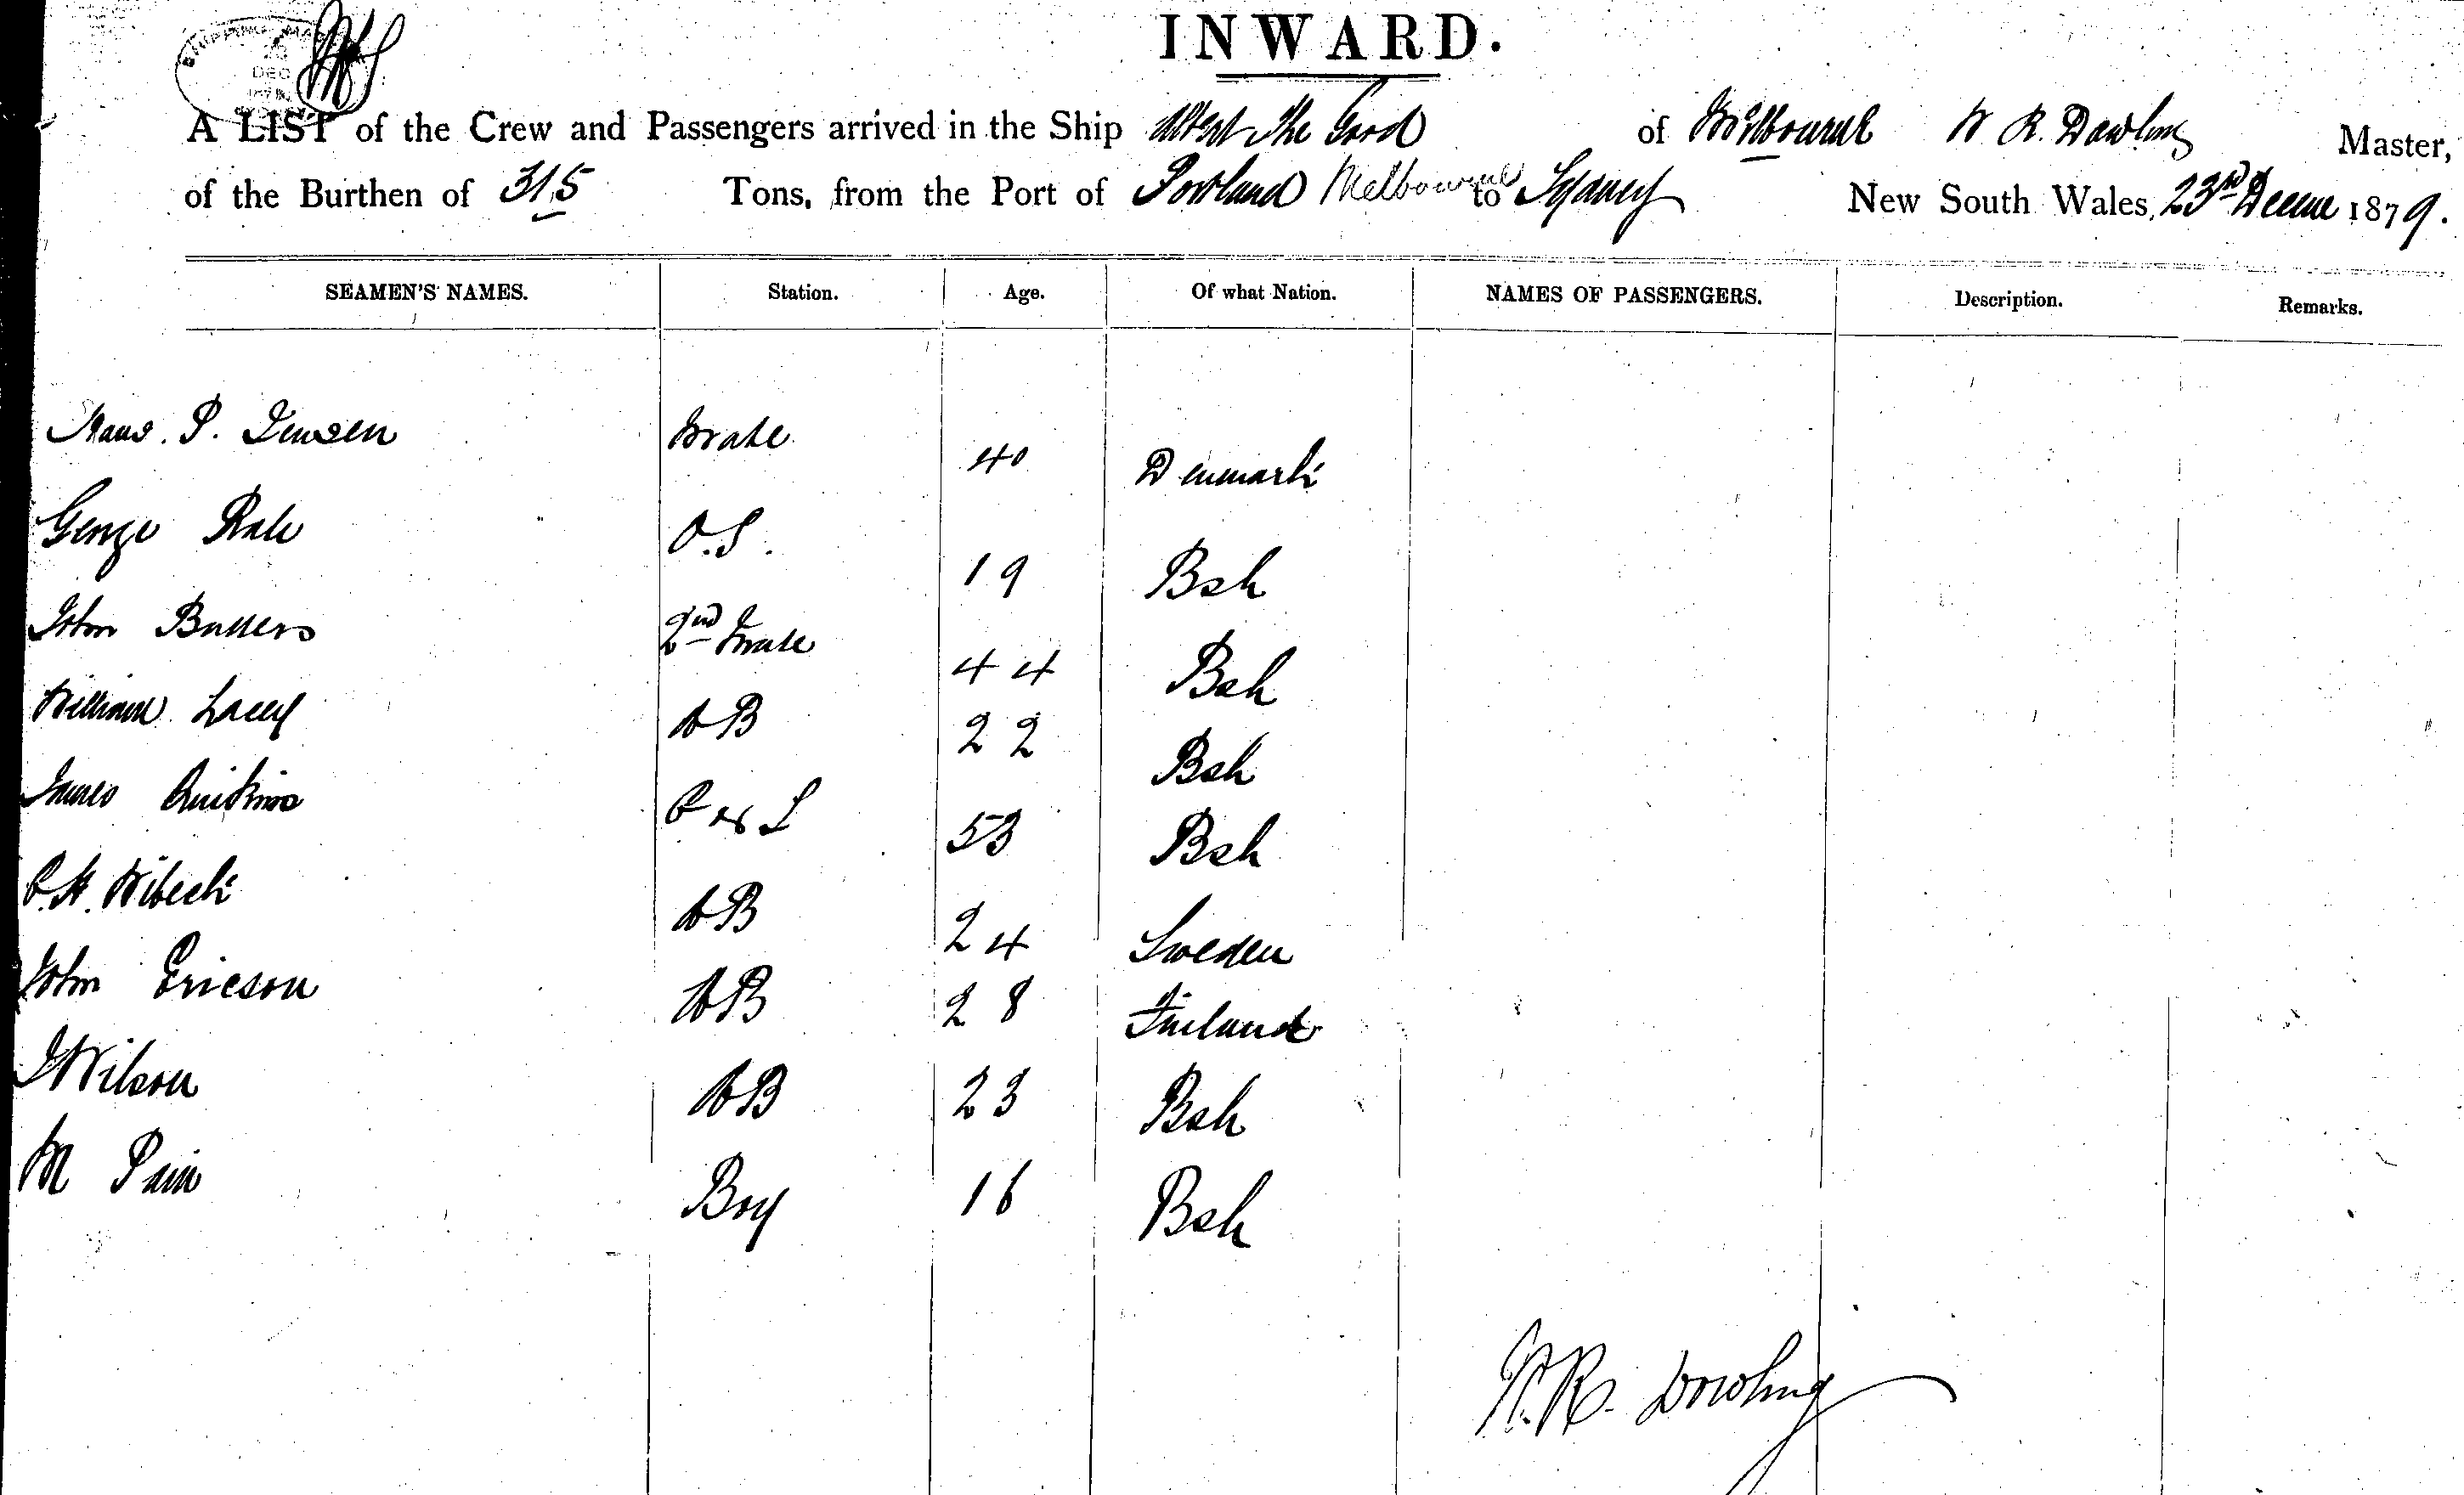 INWARD.
SHIPPING MAS
DEC
A LIST of the Crew and Passengers arrived in the Ship Albert the Good of Melbourne W R. Dowling Master,
of the Burthen of 315 Tons, from the Port of Portland Melbourne to Sydney New South Wales, 23rd 1879.
SEAMEN'S NAMES. Station. Age. Of what Nation. NAMES OF PASSENGERS. Description. Remarks.
Hans. P. Jensen Mate 40 Denmark
George O.S. 19 Bsh
John 2nd Mate 44 Bsh
William Lacey AB 22 Bsh
James C & S 53 Bsh
C.H. Wibeck AB 24 Sweden
John Ericson AB 28 Finland
J Wilson AB 23 Bsh
M Pain Boy 16 Bsh
W.R. Dowling